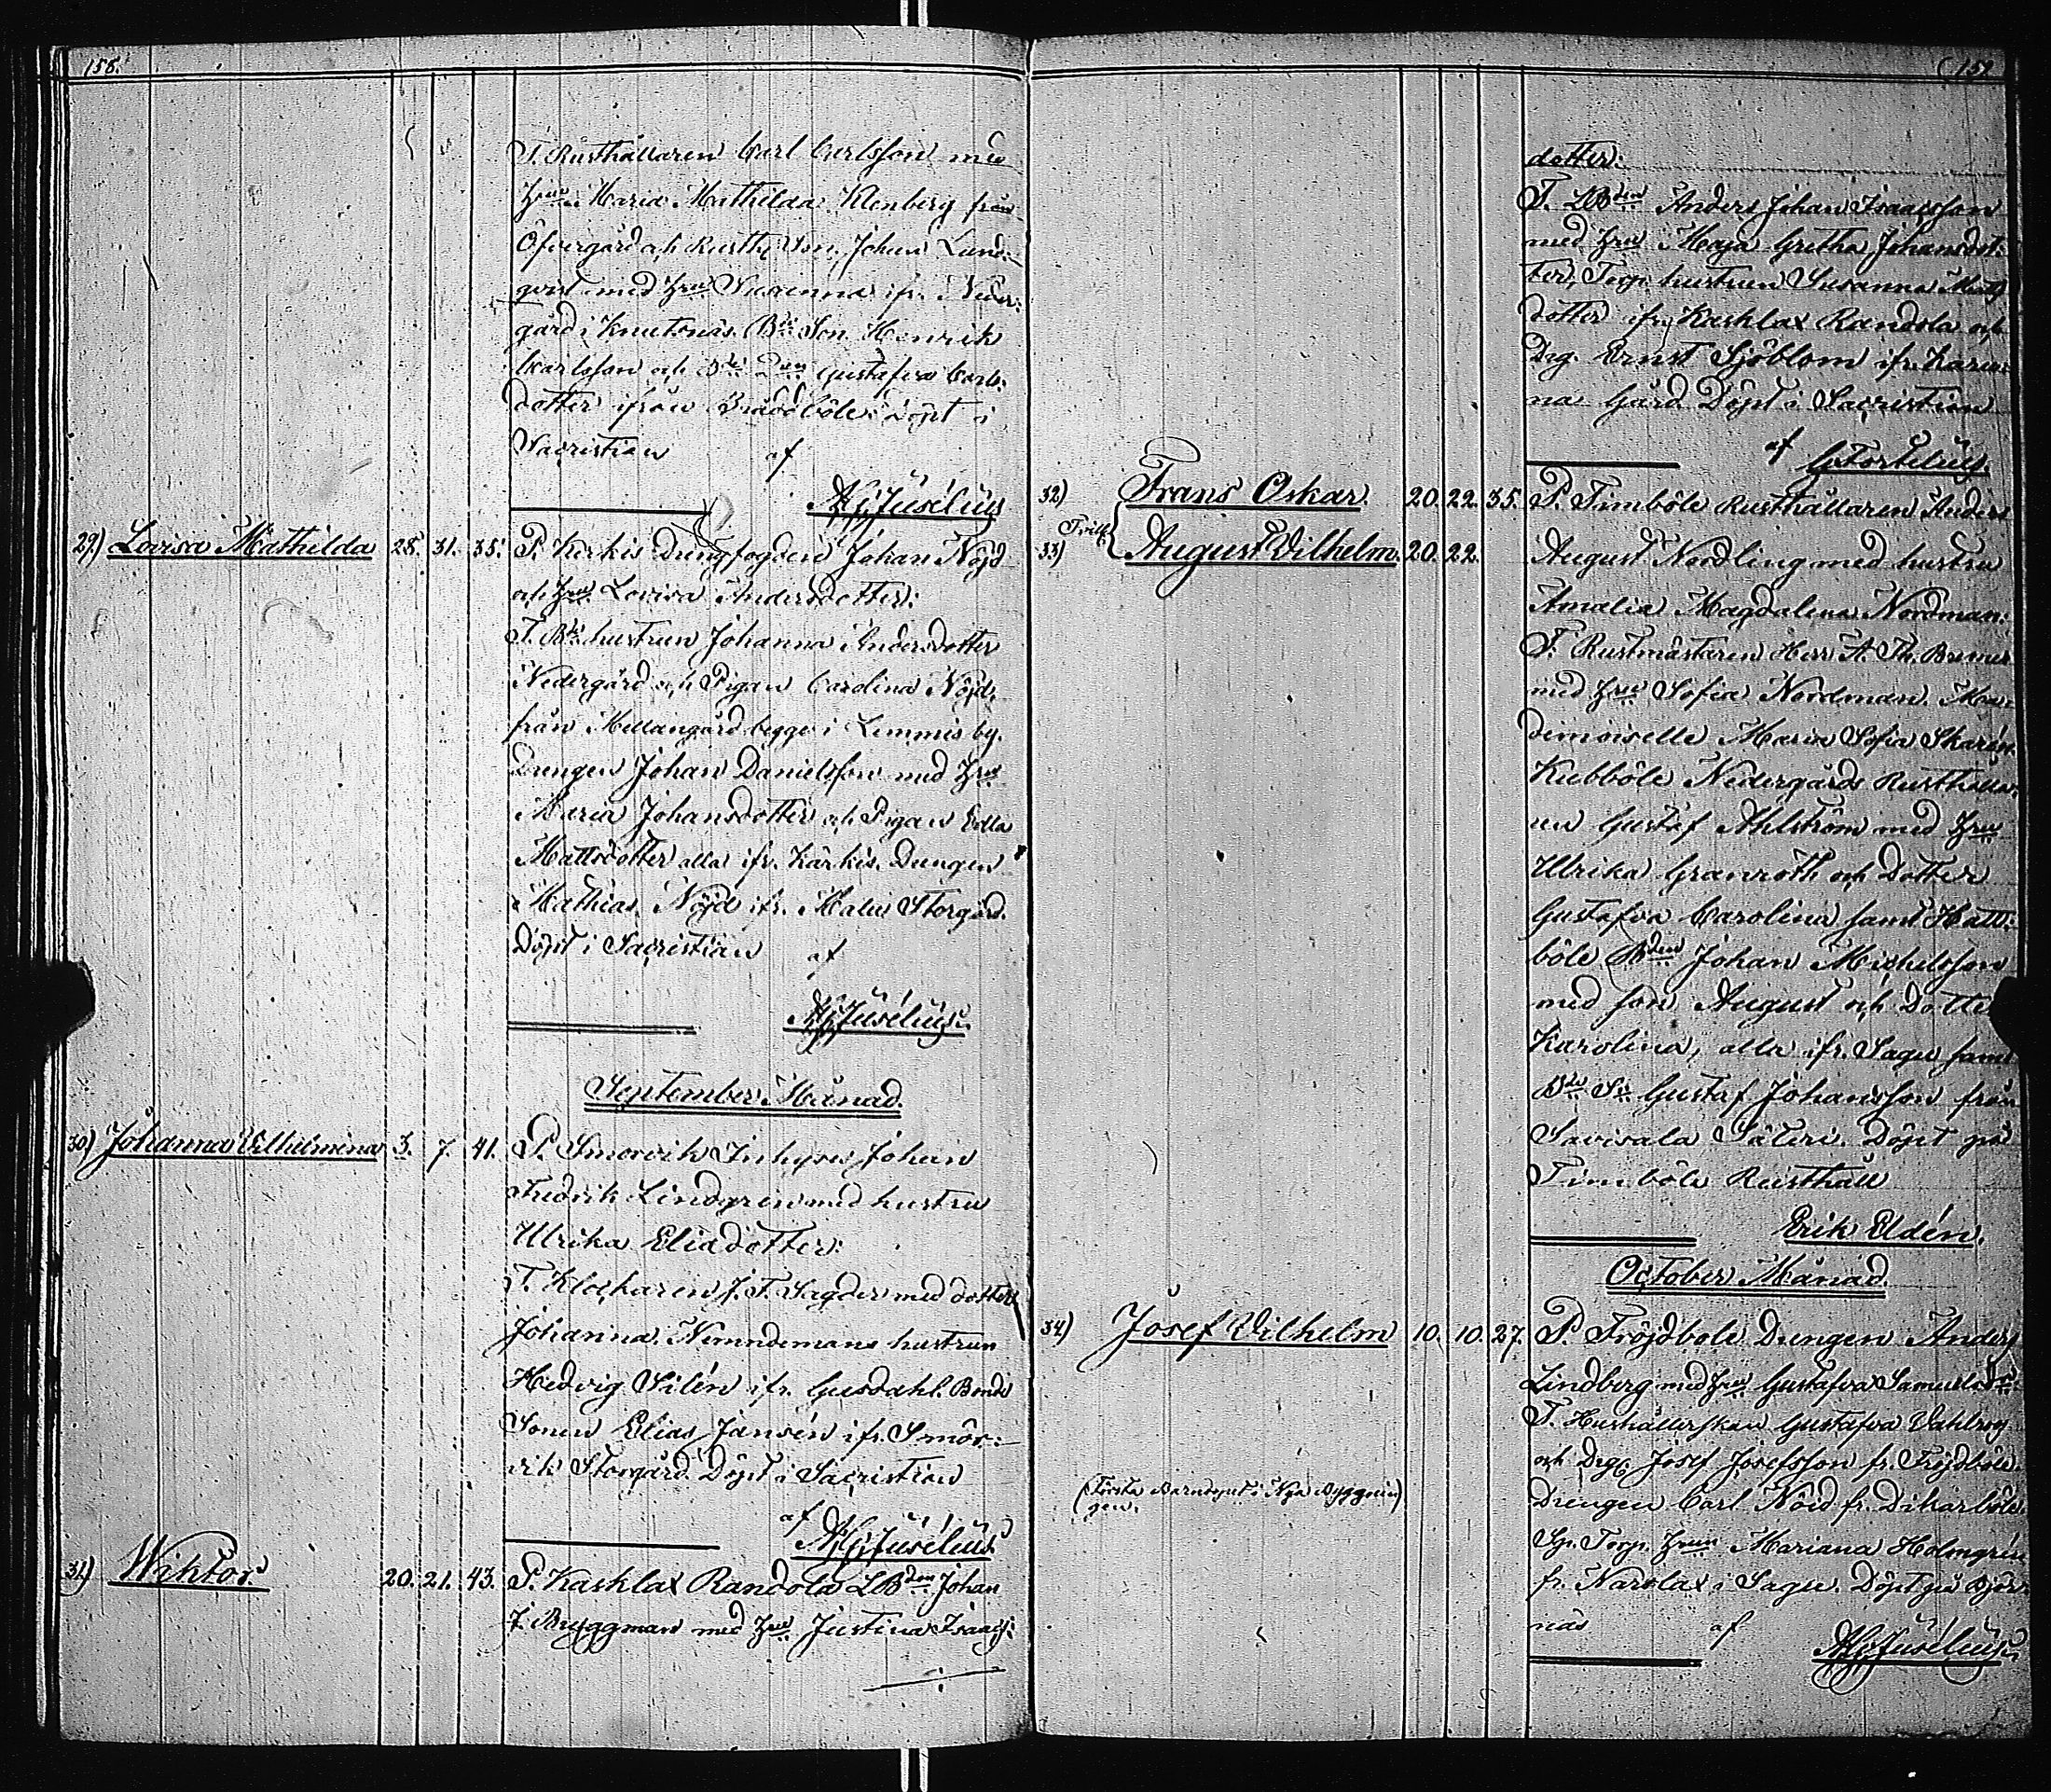 158.
T. Rusthållaren Carl Carlsson med
Hru Maria Mathilda Klenberg från
Öfvergård och Rusth. Son. Johan Lund-
qvist med Hru Susanna ifr. Neder-
gård i Knutsnäs. Bde Son Henrik
Karlsson och Bde Dn Gustafva Carls-
dotter ifrån Brådböle: Döpt i
Sacristian af
Juselius
29.) Lovisa Mathilda 28. 31. 35. P. Kerkis Drengfogden Johan Nöjd
och Hru Lovisa Andersdotter:
T. Bde hustrun Johanna Andersdotter
Nedergård och Pigan Carolina Nöjd,
från Mellangård begge i Lemmis by.
Drengen Johan Danielsson med Hru
Maria Johansdotter och Pigan Edla
Mattsdotter alla ifr. Kärkis. Drengen
Mathias Nöjd ifr. Storgård.
Döpt i Sacristian af
Juselius.
September Månad.
30) Johanna Vilhelmina 3. 7. 41. P. Smörvik Inhyse Johan
Fredrik Lindgren med hustru
Ulrika Eliadotter:
T. Klockaren J. F. Sagder med dotter
Johanna. Nämndemans hustrun
Hedvig Silén ifr. Gusdahl. Bonde
Sonen Elias Jansén ifr. Smör-
vik Storgård. Döpt i Sacristian
af
Juselius
31) Wiktor. 20. 21. 43. P. Kasklax Randola LBden Johan
J. Bryggman med Hru Justina Isaacs:
159
dotter:
T. LBden Anders Johan Isaacsson
med Hru Maja Gretha Johansdot-
ter, Torp. hustrun Susanna Matts
dotter ifr. Kasklax Randola och
Drg. Ernst Sjöblom ifr. Karu-
na Gård Döpt i Sacristian
af G. Fortelius.
32) Frans Oskar 20. 22. 35. P. Timböle Rusthållaren Anders
Tvill.
33) August Vilhelm. 20. 22. August Nordling med hustru
Amalia Magdalena Nordman:
T. Rustmästaren Herr A. Th. Bremer
med Hru Sofia Nordman. Ma-
dmoiselle Maria Sofia Skarén.
Kubböle Nedergårds Rusthålla-
ren Gustaf Ahlström med Hru
Ulrika Granroth och Dotter
Gustafva Carolina samt Hatt-
böle Bden Johan Michelsson
med son August och Dotter
Karolina, alla ifr. Sagu samt
Bde Sn Gustaf Johansson från
Savisala Säteri. Döpt på
Timböle Rusthåll
Erik Eldén.
October Månad.
34) Josef Vilhelm 10. 10. 27. P. Fröjdböle Drengen Anders
Lindberg med Hru Gustafva Samuelsdr.
T. Hushållerskan Gustafva Vahlroy
och Drg. Josef Josefsson fr. Fröjdböle.
(Första Barndopet i Nya Byggnin
gen.)
Drengen Carl Nöid fr. Dikarböle.
Sp. Torp. Hrun Mariana Holmgrén
fr. Narolax i Sagu. Döpt på Björ-
näs af
Juselius